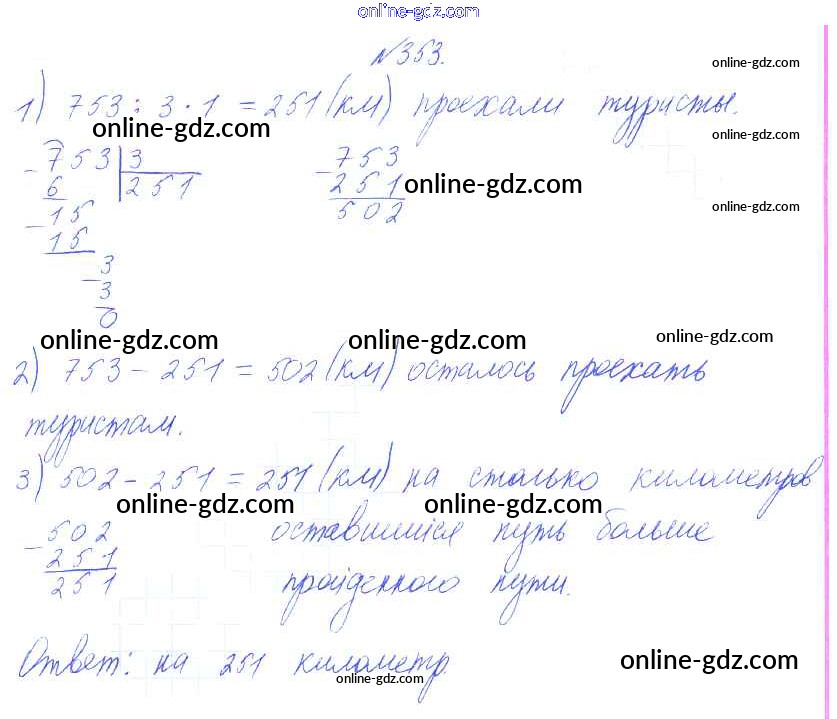 online-gdz.com
№353.
online-gdz.com
1) 753 : 3 · 1 = 251 (км) проехали туристы.
online-gdz.com
online-gdz.com
- 753 | 3
6 | 251
- 15
15
- 3
3
0
- 753
251
502
online-gdz.com
online-gdz.com
online-gdz.com
online-gdz.com
online-gdz.com
2) 753 - 251 = 502 (км) осталось проехать
туристам.
3) 502 - 251 = 251 (км) на столько километров
online-gdz.com
online-gdz.com
- 502
251
251
оставшийся путь больше
пройденного пути.
Ответ: на 251 километр.
online-gdz.com
online-gdz.com